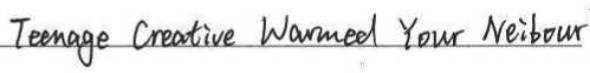 Teenage Creative Warmed Your Neibour